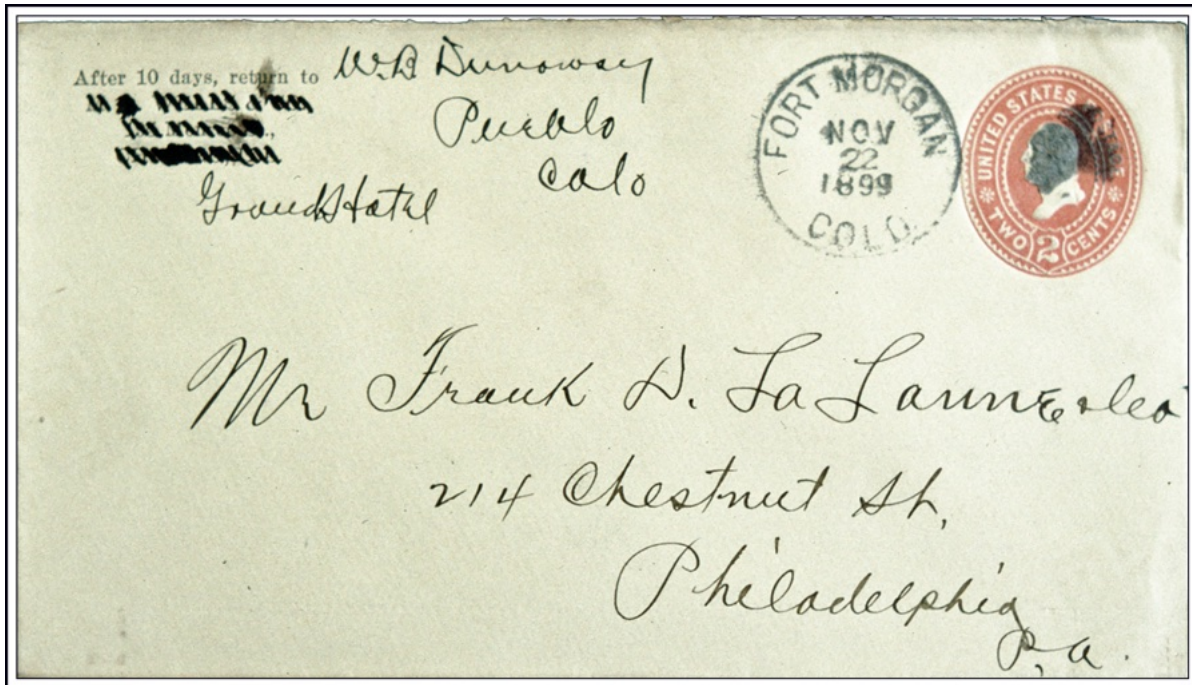 After 10 days, return to W.B. Dunoway
Pueblo
Colo
Grand Hotel
FORT MORGAN
NOV
22
1899
COLO.
UNITED STATES
TWO 2 CENTS
Mr Frank D. La Lanne & Co
214 Chestnut St,
Philadelphia
P,a.